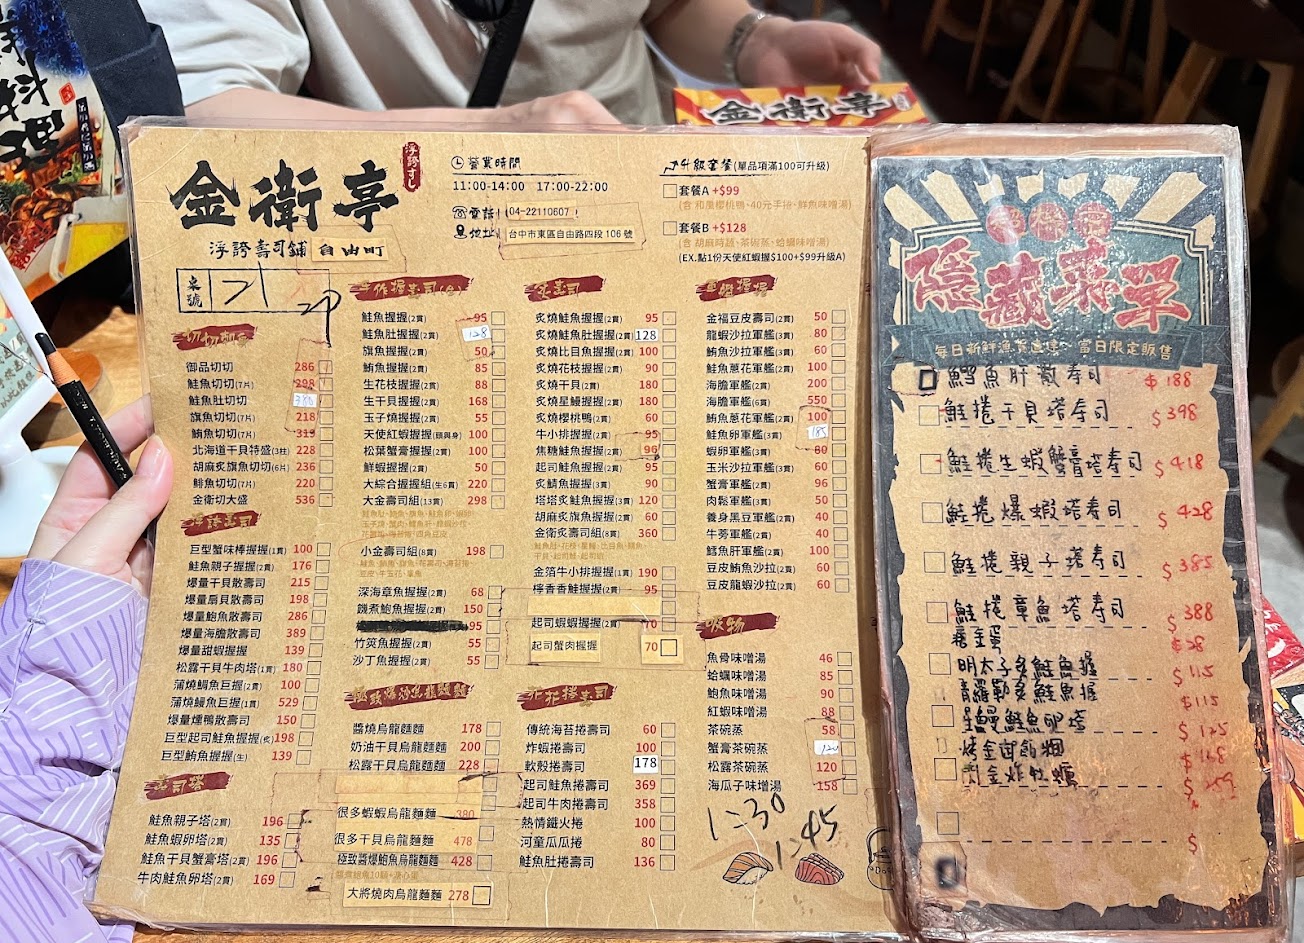 金衛亭
浮誇すし
浮誇壽司鋪 自由町
營業時間
11:00-14:00 17:00-22:00
電話 04-22110607
地址 台中市東區自由路四段 106 號
升級套餐(單品項滿100可升級)
套餐A +$99
(含 和風櫻桃鴨、40元手捲、鮮魚味噌湯)
套餐B +$128
(含 胡麻時蔬、茶碗蒸、蛤蠣味噌湯)
(EX.點1份天使紅蝦握$100+$99升級A)
桌號
切切切
御品切切 286
鮭魚切切(7片) 298
鮭魚肚切切 380
旗魚切切(7片) 218
鮪魚切切(7片) 319
北海道干貝特盛(3粒) 228
胡麻炙旗魚切切(6片) 236
鯡魚切切(7片) 220
金衛切大盛 536
浮誇壽司
巨型蟹味棒握握(1貫) 100
鮭魚親子握握(2貫) 176
爆量干貝散壽司 215
爆量扇貝散壽司 198
爆量鮑魚散壽司 286
爆量海膽散壽司 389
爆量甜蝦握握 139
松露干貝牛肉塔(1貫) 180
蒲燒鯛魚巨握(2貫) 100
蒲燒鰻魚巨握(1貫) 529
爆量燻鴨散壽司 150
巨型起司鮭魚握握(炙) 198
巨型鮪魚握握(生) 139
壽司塔
鮭魚親子塔(2貫) 196
鮭魚蝦卵塔(2貫) 135
鮭魚干貝蟹膏塔(2貫) 196
牛肉鮭魚卵塔(2貫) 169
手作握壽司(生)
鮭魚握握(2貫) 95
鮭魚肚握握(2貫) 128
旗魚握握(2貫) 50
鮪魚握握(2貫) 85
生花枝握握(2貫) 88
生干貝握握(2貫) 168
玉子燒握握(2貫) 55
天使紅蝦握握(頭與身) 100
松葉蟹膏握握(2貫) 100
鮮蝦握握(2貫) 50
大綜合握握組(生6貫) 220
大金壽司組(13貫) 298
小金壽司組(8貫) 198
深海章魚握握(2貫) 68
饞煮鮑魚握握(2貫) 150
95
竹筴魚握握(2貫) 55
沙丁魚握握(2貫) 55
醬燒烏龍麵麵 178
奶油干貝烏龍麵麵 200
松露干貝烏龍麵麵 228
很多蝦蝦烏龍麵麵 380
很多干貝烏龍麵麵 478
極致醬爆鮑魚烏龍麵麵 428
大將燒肉烏龍麵麵 278
炙壽司
炙燒鮭魚握握(2貫) 95
炙燒鮭魚肚握握(2貫) 128
炙燒比目魚握握(2貫) 100
炙燒花枝握握(2貫) 90
炙燒干貝(2貫) 180
炙燒星鰻握握(2貫) 180
炙燒櫻桃鴨(2貫) 60
牛小排握握(2貫) 95
焦糖鮭魚握握(2貫) 96
起司鮭魚握握(2貫) 95
炙鯖魚握握(3貫) 90
塔塔炙鮭魚握握(3貫) 120
胡麻炙旗魚握握(2貫) 60
金衛炙壽司組(8貫) 360
金箔牛小排握握(1貫) 190
檸香香鮭握握(2貫) 95
起司蝦蝦握握(2貫) 70
起司蟹肉握握 70
花捲壽司
傳統海苔捲壽司 60
炸蝦捲壽司 100
軟殼捲壽司 178
起司鮭魚捲壽司 369
起司牛肉捲壽司 358
熱情鐵火捲 100
河童瓜瓜捲 80
鮭魚肚捲壽司 136
軍艦握握
金福豆皮壽司(2貫) 50
龍蝦沙拉軍艦(3貫) 80
鮪魚沙拉軍艦(3貫) 60
鮭魚蔥花軍艦(2貫) 100
海膽軍艦(2貫) 200
海膽軍艦(6貫) 550
鮪魚蔥花軍艦(2貫) 100
鮭魚卵軍艦(3貫) 185
蝦卵軍艦(3貫) 80
玉米沙拉軍艦(3貫) 60
蟹膏軍艦(2貫) 96
肉鬆軍艦(3貫) 50
養身黑豆軍艦(2貫) 40
牛蒡軍艦(2貫) 40
鱈魚肝軍艦(2貫) 100
豆皮鮪魚沙拉(2貫) 60
豆皮龍蝦沙拉(2貫) 60
吸物
魚骨味噌湯 46
蛤蠣味噌湯 85
鮑魚味噌湯 90
紅蝦味噌湯 88
茶碗蒸 58
蟹膏茶碗蒸 120
松露茶碗蒸 120
海瓜子味噌湯 158
1:30
1:45
隱藏菜單
每日新鮮漁貨直送、當日限定販售
鱈魚肝散壽司 $188
鮭捲干貝塔壽司 $398
鮭捲生蝦蟹膏塔壽司 $418
鮭捲爆蝦塔壽司 $428
鮭捲親子塔壽司 $385
鮭捲章魚塔壽司 $388
糖金蛋 $28
明太子多鮭魚握 $115
青羅勒多鮭魚握 $115
星鰻鮭魚卵塔 $125
$168
黃金炸牡蠣
$
金衛亭